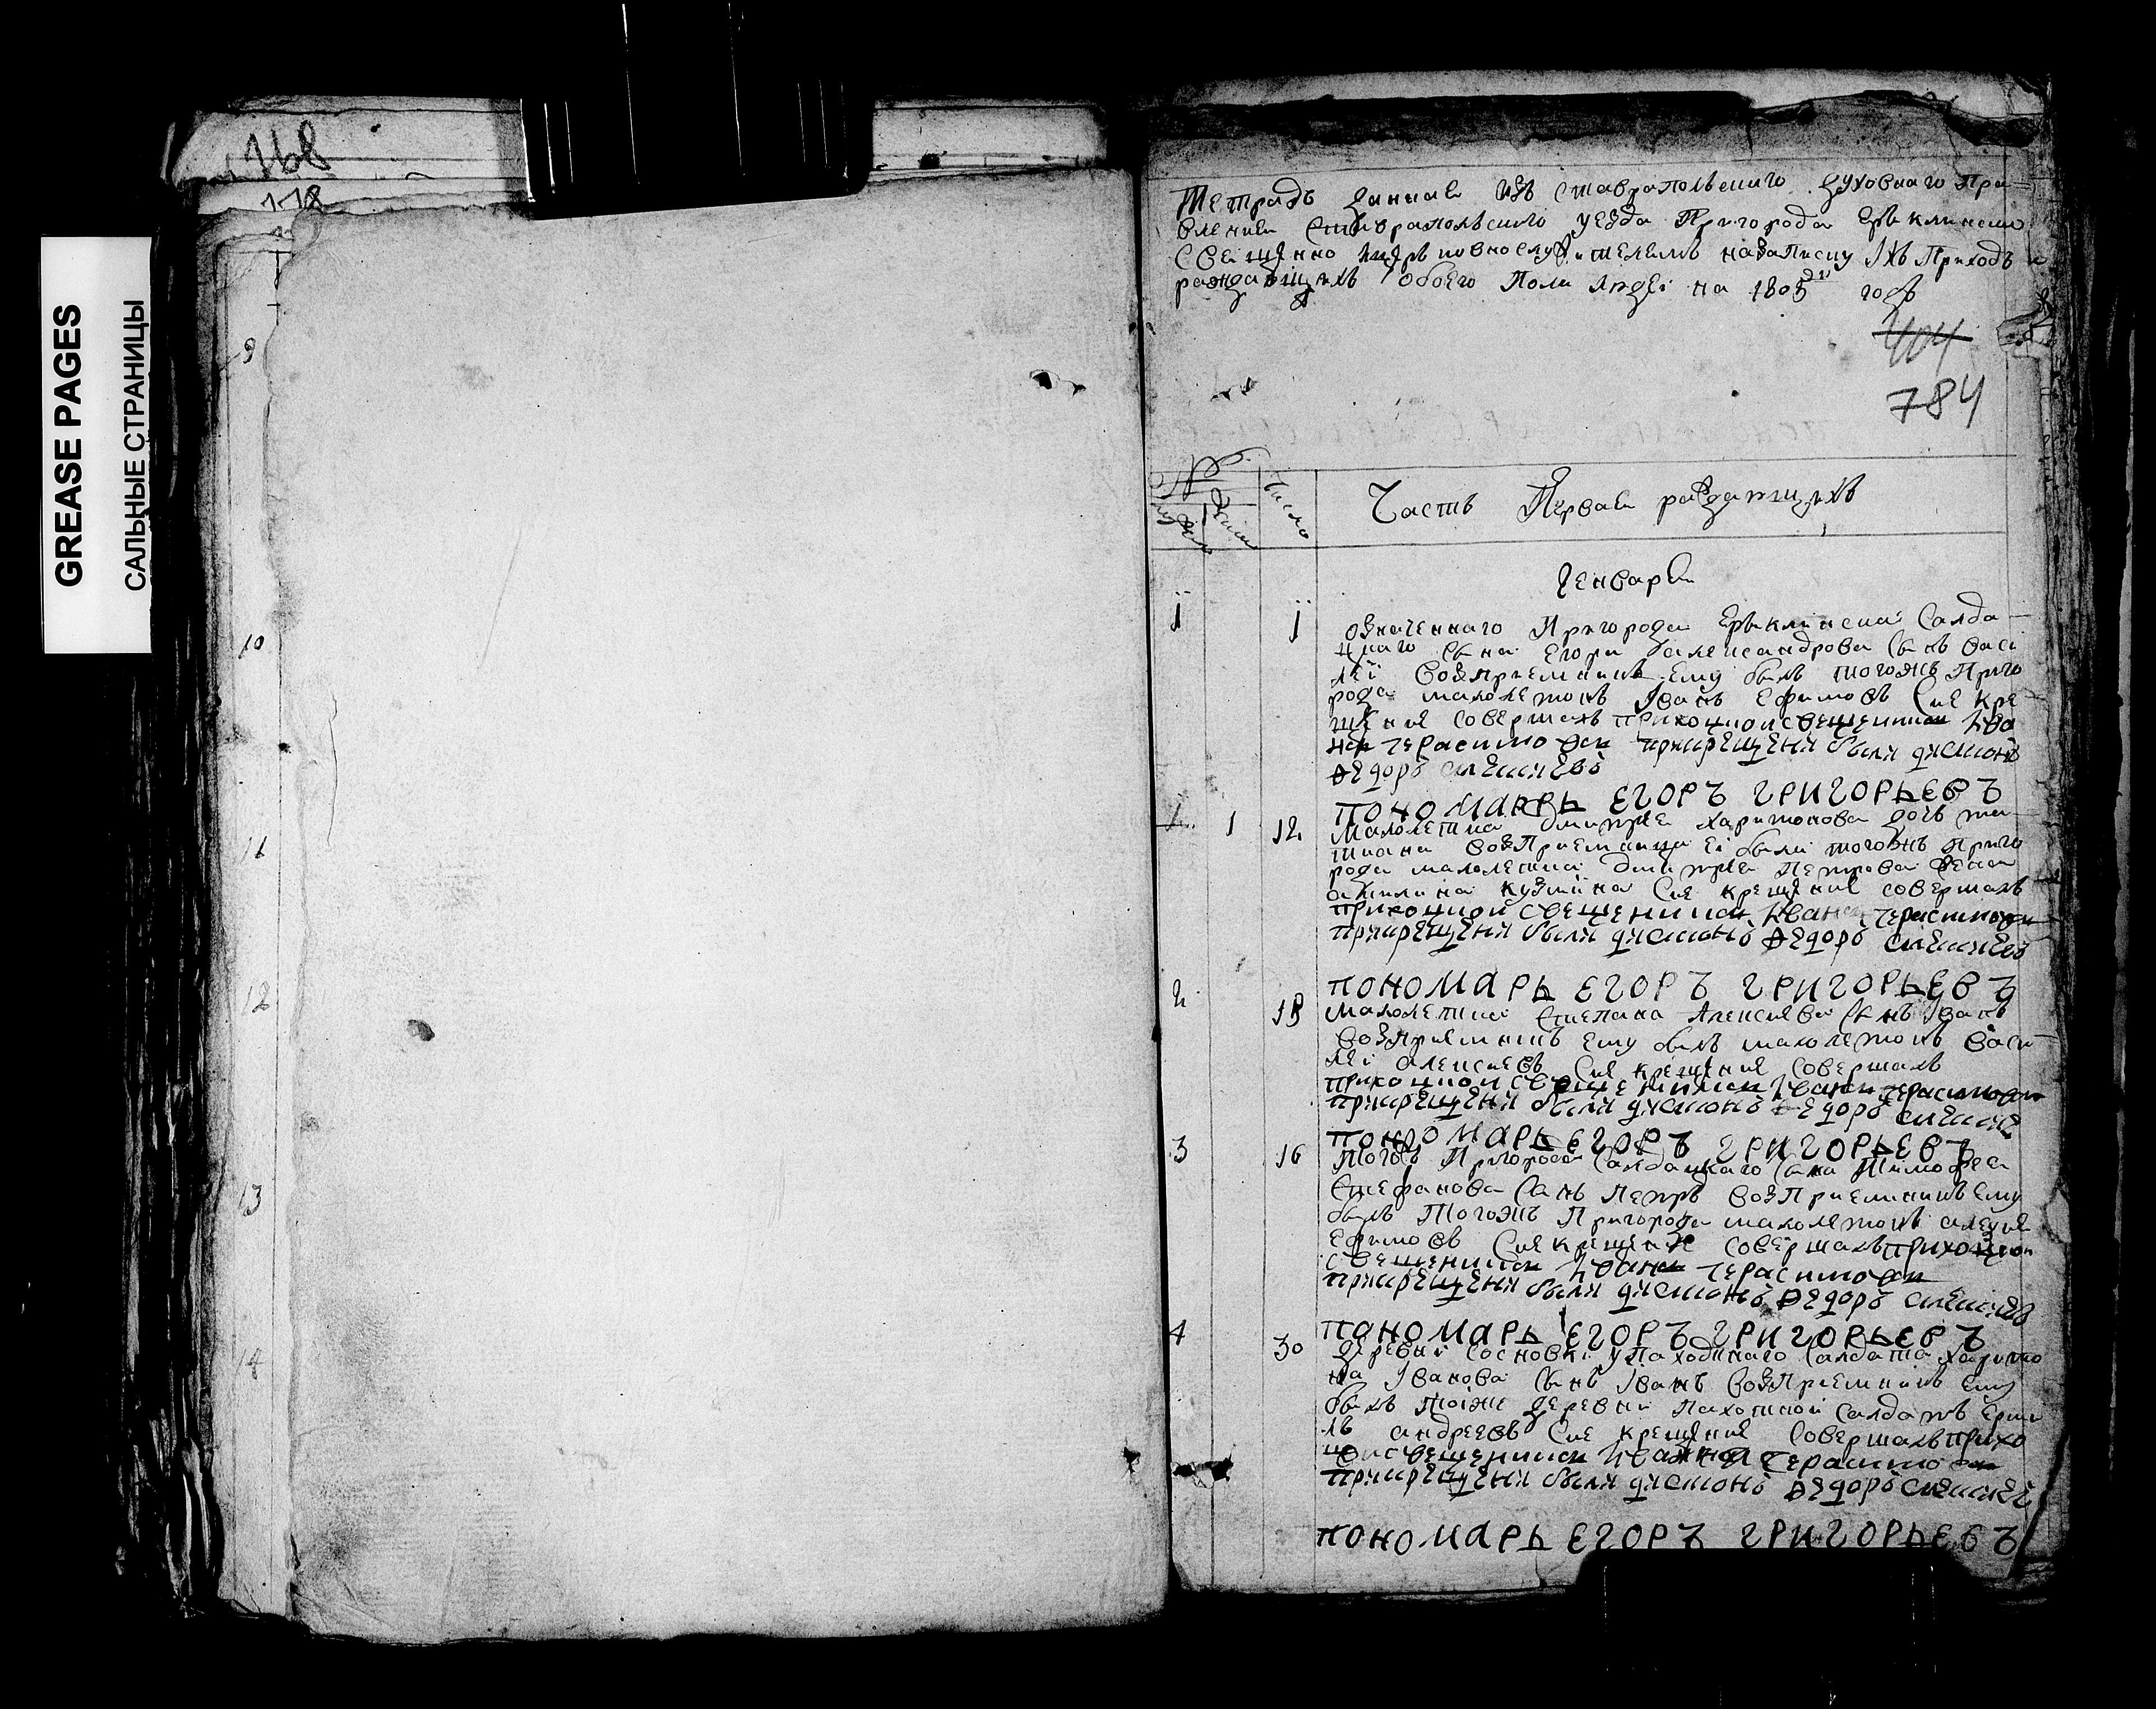 GREASE PAGES
САЛЬНЫЕ СТРАНИЦЫ
168
118
9
10
11
12
13
14
Тетрадь данная изъ ставрапольского духовнаго пра-
вления ставрапольского уезда Пригорода Ерыклинска
священно церьковнослужителемъ назаписку ихъ Приходъ
раждающихъ обоего Пола людеі на 1805 годъ
404
784
№
Число
Часть Первая раждающихъ
Генваря
1 1 означеннаго Пригорода Ерыклинска Салда-
цкаго сына Егора александрова сынъ Васи
леі Восприемникъ ему былъ тогожъ Приго
рода малолетокъ Іванъ Ефимовъ Сие кре
щение совершалъ приходной священникъ Ива
нъ герасимовъ прикрещени были дияконъ
Федоръ алексиевъ
пономарь Егоръ григорьевъ
1 12 малолетка дмитрея харитонова дочь та-
тиана Восприемница еі была тогожъ Приго
рода малолетка дмитрея Петрова жена
акилина кузмина Сие крещение совершалъ
приходной священникъ Иванъ герасимовъ
прикрещени были дияконъ Федоръ алексиевъ
пономарь Егоръ григорьевъ
2 13 малолетка Степана Алексиева сынъ Іванъ
Восприемникъ ему былъ малолетокъ Васи-
леі алексиевъ Сие крещение совершалъ
приходной священникъ Иванъ герасимовъ
прикрещени были дияконъ Федоръ алексие
пономарь Егоръ григорьевъ
3 16 тогожъ Пригорода Салдацкаго сына Тимофея
Стефанова сынъ Петръ Восприемникъ ему
былъ Тогожъ Пригорода малолетокъ алексиі
Ефимовъ Сие крещение совершалъ приходной
священникъ Иванъ герасимовъ
прикрещени были дияконъ Федоръ алексиев
пономарь Егоръ григорьевъ
4 30 деревни Сосновки Салдата харито
на Іванова сынъ Іванъ Восприемникъ ему
былъ тоіже деревни Пахотной Салдатъ
андреевъ Сие крещение совершалъ прихо
цкои священникъ Иванъ герасимовъ
прикрещени были дияконъ Федоръ алексиев
пономарь Егоръ григорьевъ